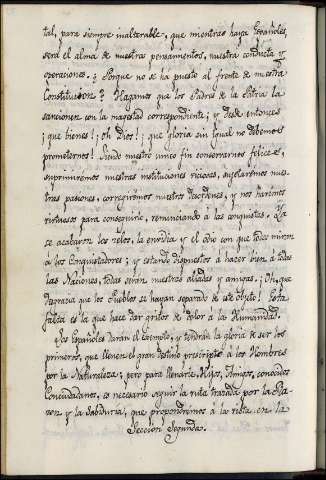 tal, para siempre inalterable, que mientras haya Españoles,
será el alma de nuestras pensamientos, nuestra conducta y
operaciones. ¿Porque no se ha puesto al frente de nuestra
Constitucion? Hagamos que los Padres de la Patria la
sancionen con la magestad correspondiente; y desde entonces
¡que bienes!; oh Dios!; que gloria sin igual no debemos
prometernos! Siendo nuestro unico fin conservarnos felices,
suprimiremos nuestras instituciones viciosas, sujetaremos nues-
tras pasiones, corregiremos nuestros desordenes, y nos haremos
virtuosos para conseguirlo, renunciando á las conquistas. Ya
se acabaron los zelos, la envidia y el odio con que todos miran
á los Conquistadores; y estando dispuestos á hacer bien á todas
las Naciones, todas serán nuestras aliadas y amigas. ¡Oh, que
desgracia que los Pueblos se hayan separado de este objeto! Esta
falta es la que hace dar gritos de dolor á la Humanidad.
Los Españoles darán el exemplo, y tendrán la gloria de ser los
primeros, que llenen el gran destino prescripto á los Hombres
por la Naturaleza; pero para llenarle, Hijos, Amigos, conocidos
Conciudadanos, es necesario seguir la ruta trazada por la Ra-
zon y la Sabiduria, que propondremos á la vista en la
Seccion Segunda.